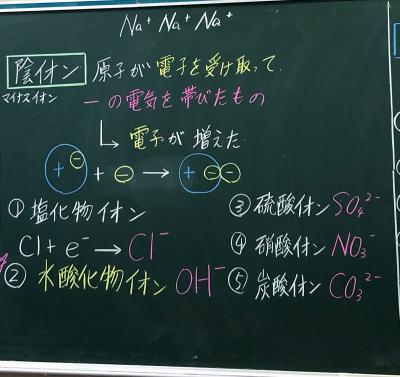 Na⁺ Na⁺ Na⁺
陰イオン 原子が電子を受け取って
マイナスイオン
－の電気を帯びたもの
↳ 電子が増えた
+ ⊖ + ⊖ → + ⊖ ⊖
① 塩化物イオン
Cl + e⁻ → Cl⁻
② 水酸化物イオン OH⁻
③ 硫酸イオン SO₄²⁻
④ 硝酸イオン NO₃⁻
⑤ 炭酸イオン CO₃²⁻